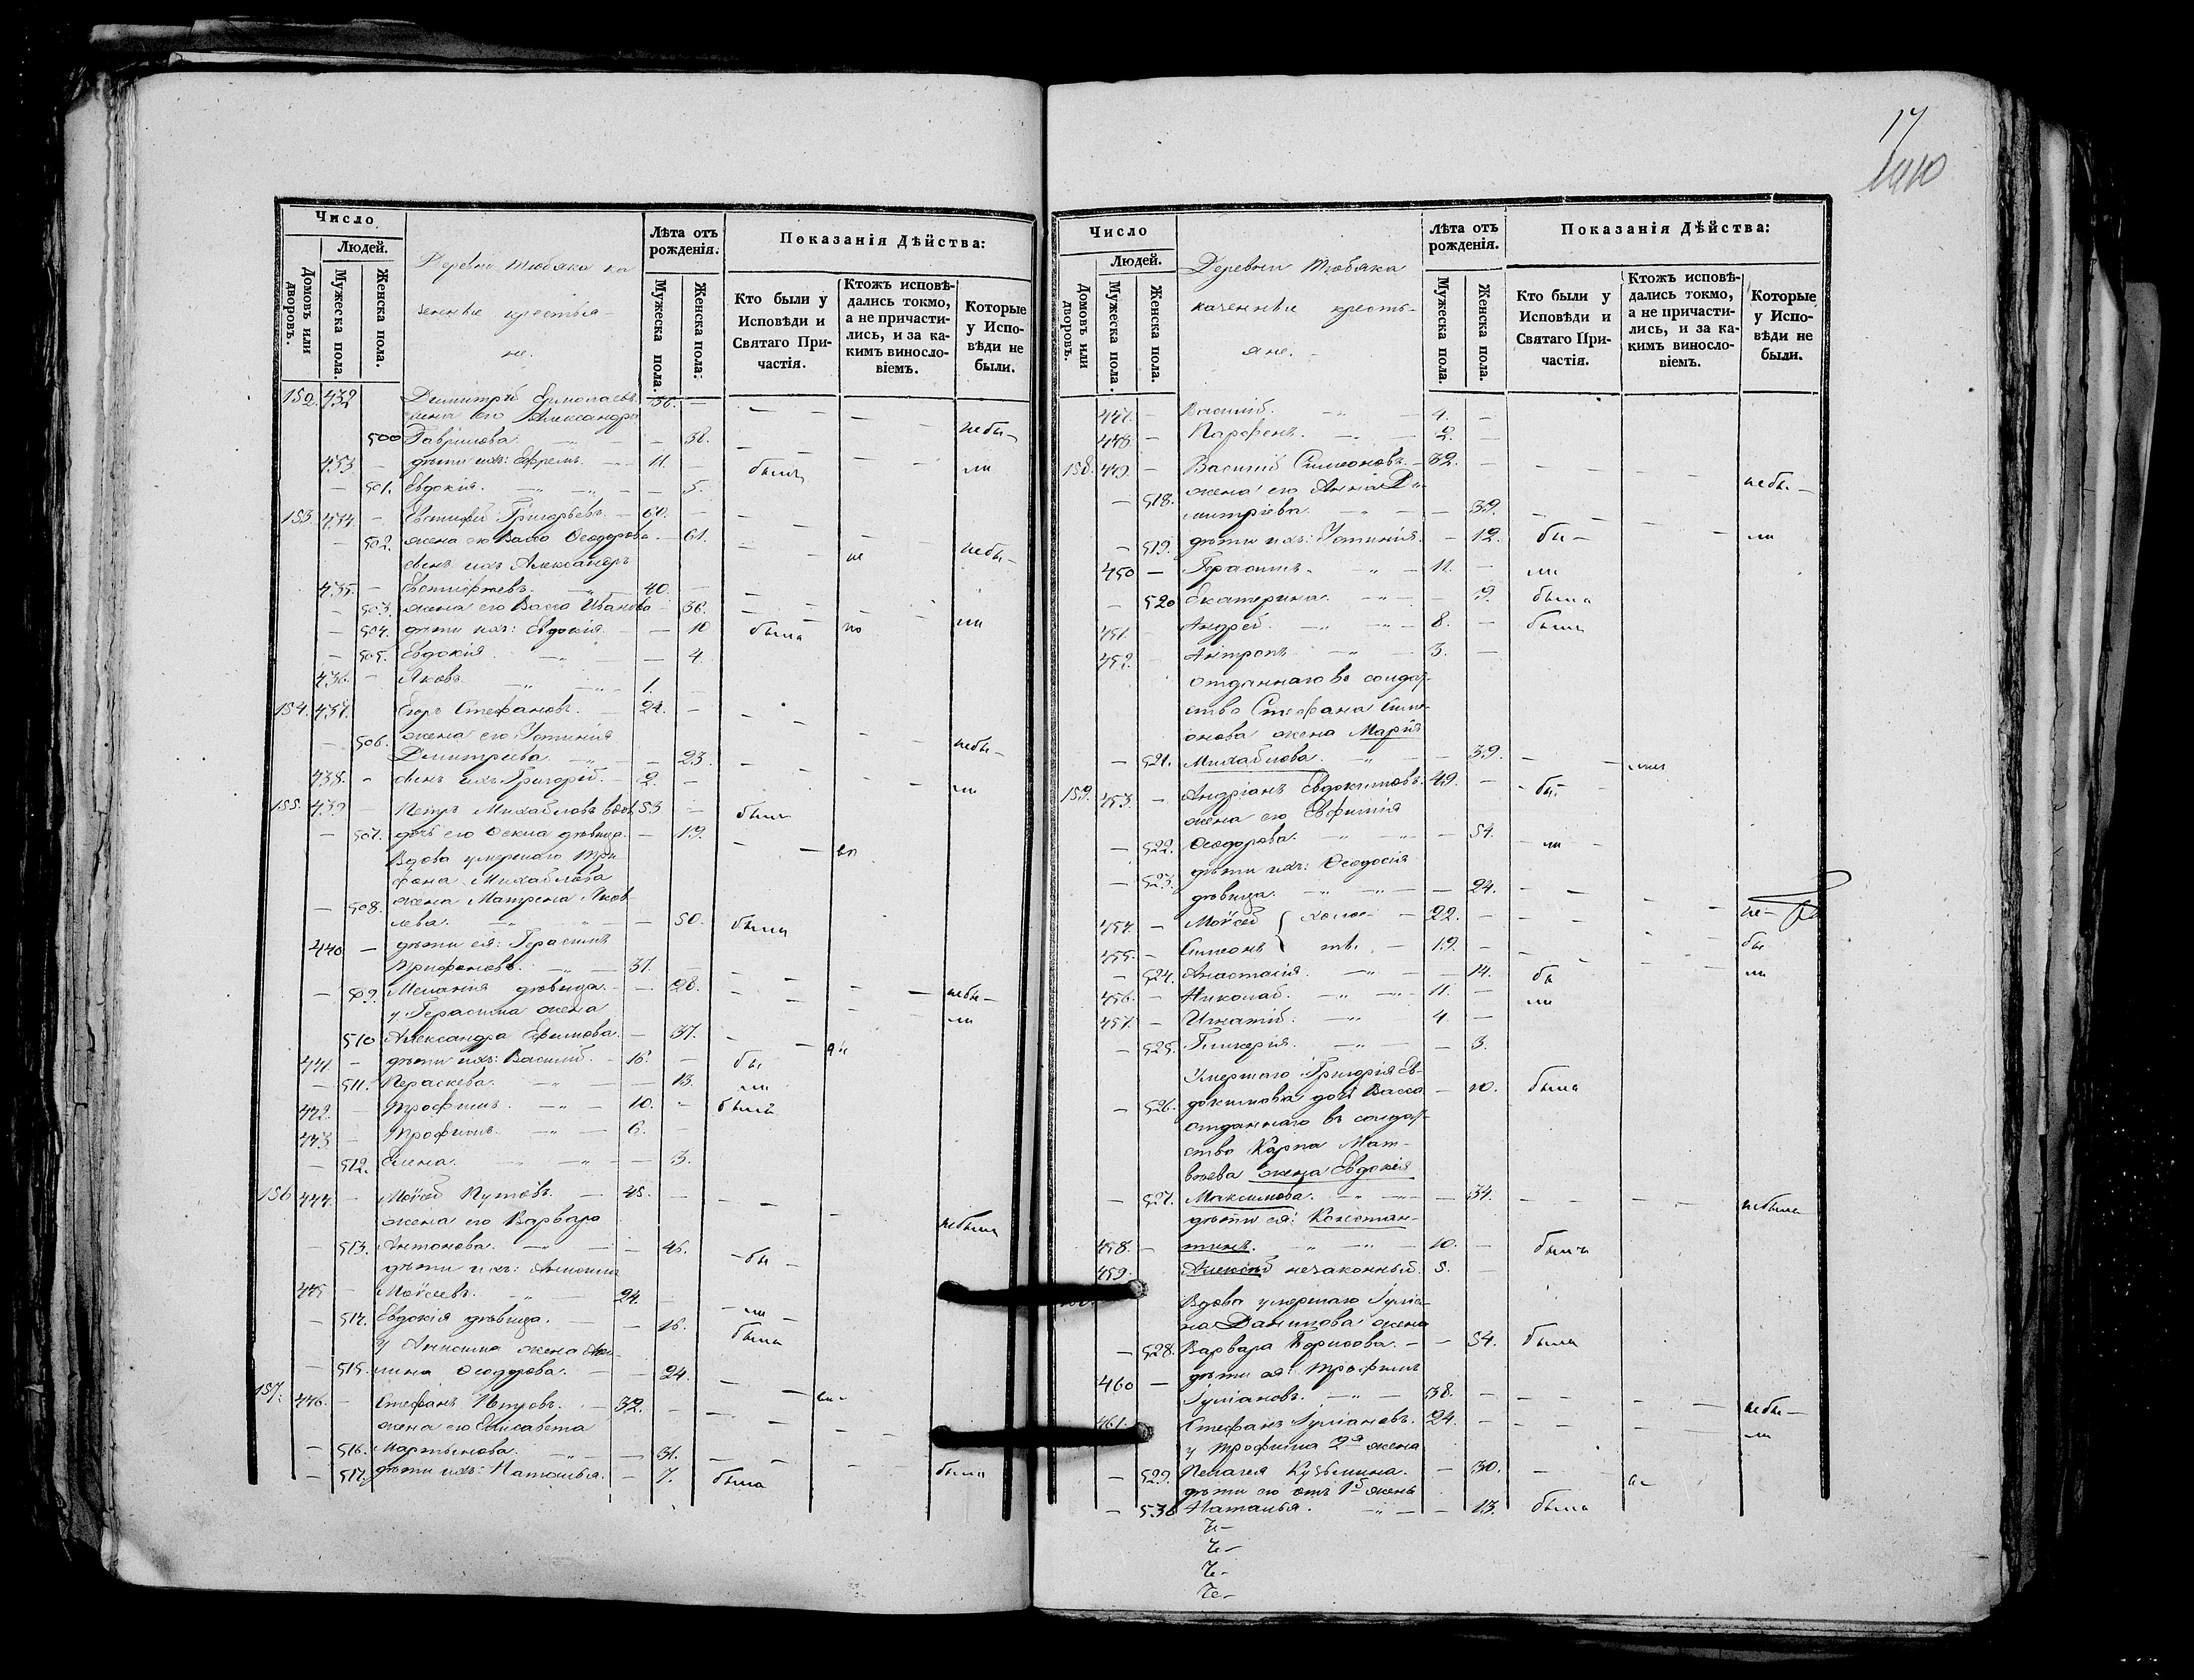 Число
Людей.
Домовъ или дворовъ.
Мужеска пола.
Женска пола.
Деревни Тюбяка ка
зенные крестья-
не.
Лѣта отъ рожденія.
Мужеска пола.
Женска пола:
Показанія Дѣйства:
Кто были у Исповѣди и Святаго Причастія.
Ктожъ исповѣдались токмо, а не причастились, и за какимъ винословіемъ.
Которые у Исповѣди не были.
152. 432 Димитрій Ермолаевъ 36. —
жена его Александра
500 Гаврилова. — 38. небы-
433 — дѣти ихъ: Ефремъ. 11. былъ ли
— 501. Евдокія. — 5.
153. 434. — Евстифій Григорьевъ. 60. —
— 502. жена его Васса Ѳеодорова — 61. не небы-
сынъ ихъ Александръ
435. — Евстифѣевъ. 40. —
— 503. жена его Васса Иванова — 36. ли
— 504. дѣти ихъ: Евдокія. — 10 была по
— 505. Евдокія — 4.
436. — Яковъ 1.
154. 437. Егоръ Стефановъ. 24. —
— 506. жена его Устинія
Димитріева — 23. небы-
438. — сынъ ихъ Григорій. 2. — ли
155. 439 — Петръ Михайловъ вдов. 53 — былъ
— 507. дочь его Ѳекла дѣвица. — 19.
Вдова умершаго Три
фона Михайлова
— 508. жена Матрена Яков
лева. — 50. была
440 — дѣти ея: Герасимъ
Трифоновъ. 37. —
— 509. Меланія дѣвица. — 28. небы-
у Герасима жена ли
510 Александра Ефимова. — 37.
441 — дѣти ихъ: Василій. 16. — бы
— 511. Параскева. — 13. ли
442. — Трофимъ. 10. — былъ
443 — Трофимъ. 6. —
— 512. Елена. — 3.
156 444. — Моѵсей Кутевъ. 48. —
жена его Варвара небыла
— 513. Антонова. — 46. бы
дѣти ихъ:
445 — Моѵсеевъ. 24. — ли
— 514. Евдокія дѣвица. — 16. была
— 515. Ѳеодорова. — 24.
157. 446. — Стефанъ Петровъ. 32. —
жена его Елисавета
— 516. Мартынова. — 31.
— 517. дѣти ихъ: Наталья. — 7. была была
17
Число
Людей.
Домовъ или дворовъ.
Мужеска пола.
Женска пола.
Деревни Тюбяка
казенные кресть-
яне.
Лѣта отъ рожденія.
Мужеска пола.
Женска пола.
Показанія Дѣйства:
Кто были у Исповѣди и Святаго Причастія.
Ктожъ исповѣдались токмо, а не причастились, и за какимъ винословіемъ.
Которые у Исповѣди не были.
447. — Василій. 4. —
448 — Парфенъ. 2. —
158. 449. — Василій Симеоновъ. 32. — небы-
— 518. жена его Анна Ди-
митріева. — 39.
— 519. дѣти ихъ: Устинія. — 12. бы- ли
450 — Герасимъ. 11. — ли
— 520 Екатерина. — 9. была
451. — Андрей. 8. — былъ
452. — Антропъ 3. —
отданнаго въ солдат-
ство Стефана Симе-
онова жена Марія
— 521. Михайлова. — 39.
159. 453. — Андріанъ Евдокимовъ. 49. — бы-
жена его Евфимія
— 522. Ѳеодорова. — 54. ли
— 523. дѣти ихъ: Ѳеодосія
дѣвица. — 24.
454. — Моѵсей холос- 22. — не-
455. — Симеонъ ты. 19. — бы
— 524. Анастасія. — 14. бы ли
456. — Николай. 11. — ли
457. — Игнатій. 4. —
— 525. Гликерія. — 3.
Умершаго Григорія Ев-
— 526. докимова дочь Васса — 20. была
отданнаго въ солдат-
ство Карпа Мат-
вѣева жена Евдокія
— 527. Максимова. — 34. небыла
дѣти ея: Констан-
458. — тинъ. 10. — былъ
459. Алексѣй незаконный. 5. —
Вдова умершаго Іуліа-
на Данилова жена
— 528. Варвара Борисова. — 54. была
460 — дѣти ея: Трофимъ
Іуліановъ. 38. — небы-
461. Стефанъ Іуліановъ. 24. — ли
у Трофима 2я жена
— 529. Пелагея Кузьмина. — 30.
дѣти его отъ 1й жены
— 530 Наталья. — 13. была